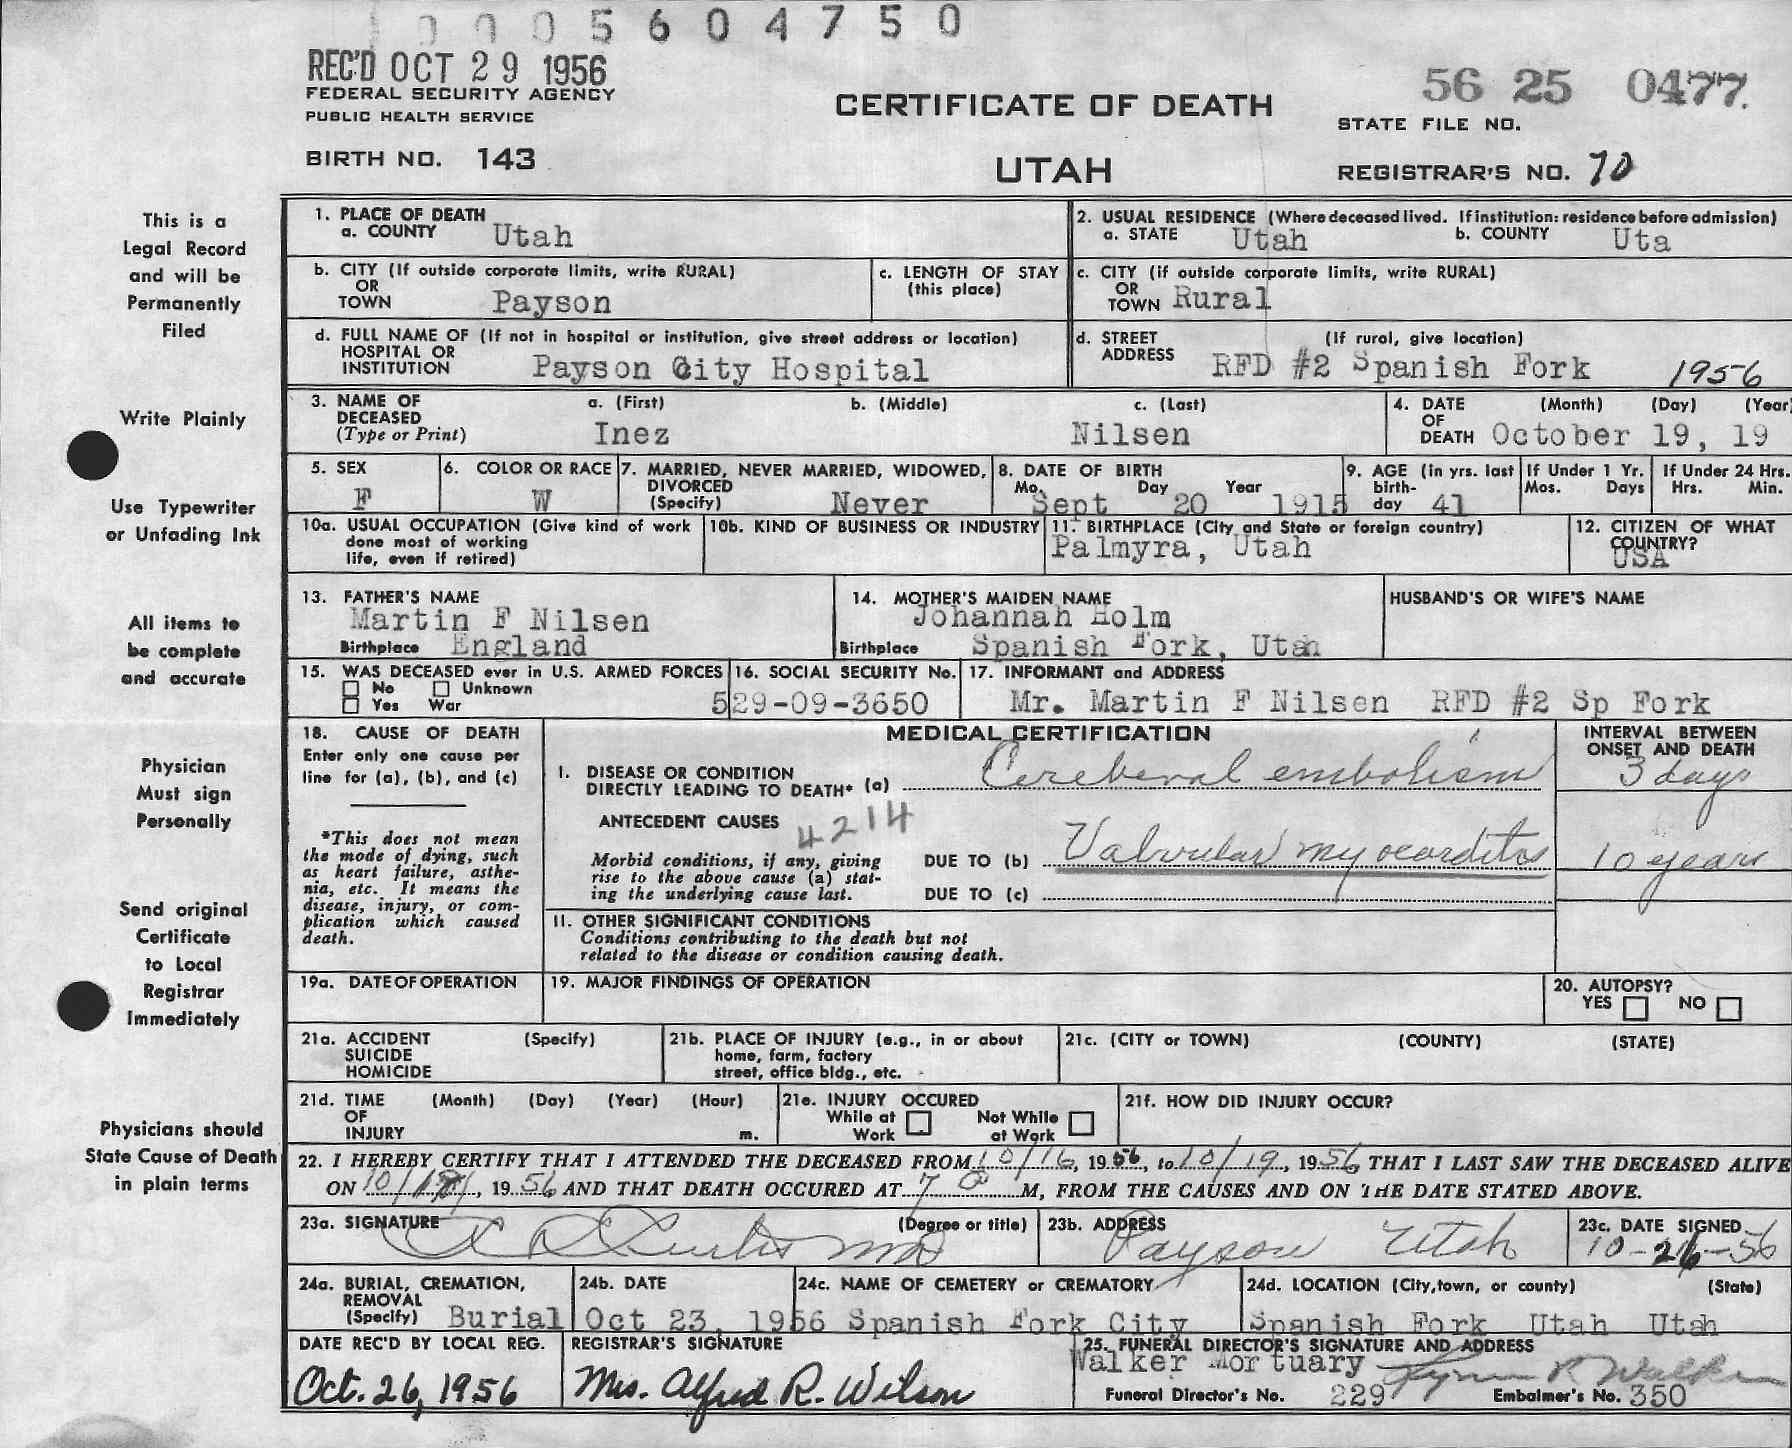 0005604750
REC'D OCT 29 1956
FEDERAL SECURITY AGENCY
PUBLIC HEALTH SERVICE
BIRTH NO. 143
CERTIFICATE OF DEATH
UTAH
56 25 0477.
STATE FILE NO.
REGISTRAR'S NO. 70
This is a
Legal Record
and will be
Permanently
Filed
Write Plainly
Use Typewriter
or Unfading Ink
All items to
be complete
and accurate
Physician
Must sign
Personally
Send original
Certificate
to Local
Registrar
Immediately
Physicians should
State Cause of Death
in plain terms
1. PLACE OF DEATH
a. COUNTY Utah
2. USUAL RESIDENCE (Where deceased lived. If institution: residence before admission)
a. STATE Utah b. COUNTY Uta
b. CITY (If outside corporate limits, write RURAL)
OR
TOWN Payson
c. LENGTH OF STAY
(this place)
c. CITY (if outside corporate limits, write RURAL)
OR
TOWN Rural
d. FULL NAME OF (If not in hospital or institution, give street address or location)
HOSPITAL OR
INSTITUTION Payson City Hospital
d. STREET (If rural, give location)
ADDRESS RFD #2 Spanish Fork
1956
3. NAME OF a. (First) b. (Middle) c. (Last)
DECEASED
(Type or Print) Inez Nilsen
4. DATE (Month) (Day) (Year)
OF
DEATH October 19, 19
5. SEX
F
6. COLOR OR RACE
W
7. MARRIED, NEVER MARRIED, WIDOWED,
DIVORCED
(Specify) Never
8. DATE OF BIRTH
Mo. Day Year
Sept 20 1915
9. AGE (in yrs. last
birth-
day 41
If Under 1 Yr.
Mos. Days
If Under 24 Hrs.
Hrs. Min.
10a. USUAL OCCUPATION (Give kind of work
done most of working
life, even if retired)
10b. KIND OF BUSINESS OR INDUSTRY
11. BIRTHPLACE (City and State or foreign country)
Palmyra, Utah
12. CITIZEN OF WHAT
COUNTRY?
USA
13. FATHER'S NAME
Martin F Nilsen
Birthplace England
14. MOTHER'S MAIDEN NAME
Johannah Holm
Birthplace Spanish Fork, Utah
HUSBAND'S OR WIFE'S NAME
15. WAS DECEASED ever in U.S. ARMED FORCES
No Unknown
Yes War
16. SOCIAL SECURITY No.
529-09-3650
17. INFORMANT and ADDRESS
Mr. Martin F Nilsen RFD #2 Sp Fork
18. CAUSE OF DEATH
Enter only one cause per
line for (a), (b), and (c)
*This does not mean
the mode of dying, such
as heart failure, asthe-
nia, etc. It means the
disease, injury, or com-
plication which caused
death.
MEDICAL CERTIFICATION
INTERVAL BETWEEN
ONSET AND DEATH
I. DISEASE OR CONDITION
DIRECTLY LEADING TO DEATH* (a) Cerebral embolism 3 days
ANTECEDENT CAUSES 4214
Morbid conditions, if any, giving
rise to the above cause (a) stat-
ing the underlying cause last.
DUE TO (b) Valvular myocarditis 10 years
DUE TO (c)
II. OTHER SIGNIFICANT CONDITIONS
Conditions contributing to the death but not
related to the disease or condition causing death.
19a. DATE OF OPERATION
19. MAJOR FINDINGS OF OPERATION
20. AUTOPSY?
YES NO
21a. ACCIDENT (Specify)
SUICIDE
HOMICIDE
21b. PLACE OF INJURY (e.g., in or about
home, farm, factory
street, office bldg., etc.
21c. (CITY or TOWN) (COUNTY) (STATE)
21d. TIME (Month) (Day) (Year) (Hour)
OF
INJURY m.
21e. INJURY OCCURED
While at Not While
Work at Work
21f. HOW DID INJURY OCCUR?
22. I HEREBY CERTIFY THAT I ATTENDED THE DECEASED FROM 10/16, 1956, to 10/19, 1956, THAT I LAST SAW THE DECEASED ALIVE
ON 10/, 1956 AND THAT DEATH OCCURED AT 7 a M, FROM THE CAUSES AND ON THE DATE STATED ABOVE.
23a. SIGNATURE (Degree or title)
Curtis MD
23b. ADDRESS
Payson Utah
23c. DATE SIGNED
10-26-56
24a. BURIAL, CREMATION,
REMOVAL
(Specify) Burial
24b. DATE
Oct 23, 1956
24c. NAME OF CEMETERY or CREMATORY
Spanish Fork City
24d. LOCATION (City, town, or county) (State)
Spanish Fork Utah Utah
DATE REC'D BY LOCAL REG.
Oct. 26, 1956
REGISTRAR'S SIGNATURE
Mrs. Alfred R. Wilson
25. FUNERAL DIRECTOR'S SIGNATURE AND ADDRESS
Walker Mortuary Walker
Funeral Director's No. 229 Embalmer's No. 350